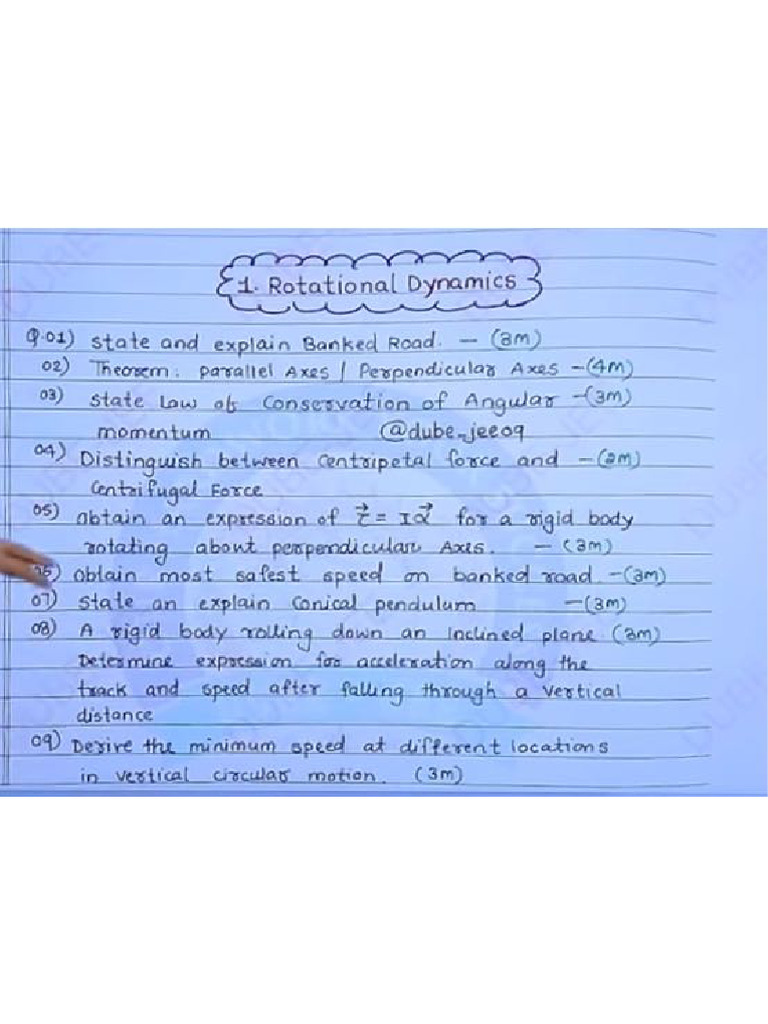 1. Rotational Dynamics
Q.01) State and explain Banked Road. — (3m)
02) Theorem: Parallel Axes / Perpendicular Axes -(4m)
03) State Law of Conservation of Angular -(3m)
momentum @dube_jee09
04) Distinguish between Centripetal force and -(2m)
Centrifugal Force
05) Obtain an expression of τ⃗ = Iα⃗ for a rigid body
rotating about perpendicular Axis. — (3m)
06) Obtain most safest speed on banked road -(3m)
07) State an explain Conical pendulum —(3m)
08) A rigid body rolling down an Inclined plane (3m)
Determine expression for acceleration along the
track and speed after falling through a vertical
distance
09) Derive the minimum speed at different locations
in vertical circular motion. (3m)